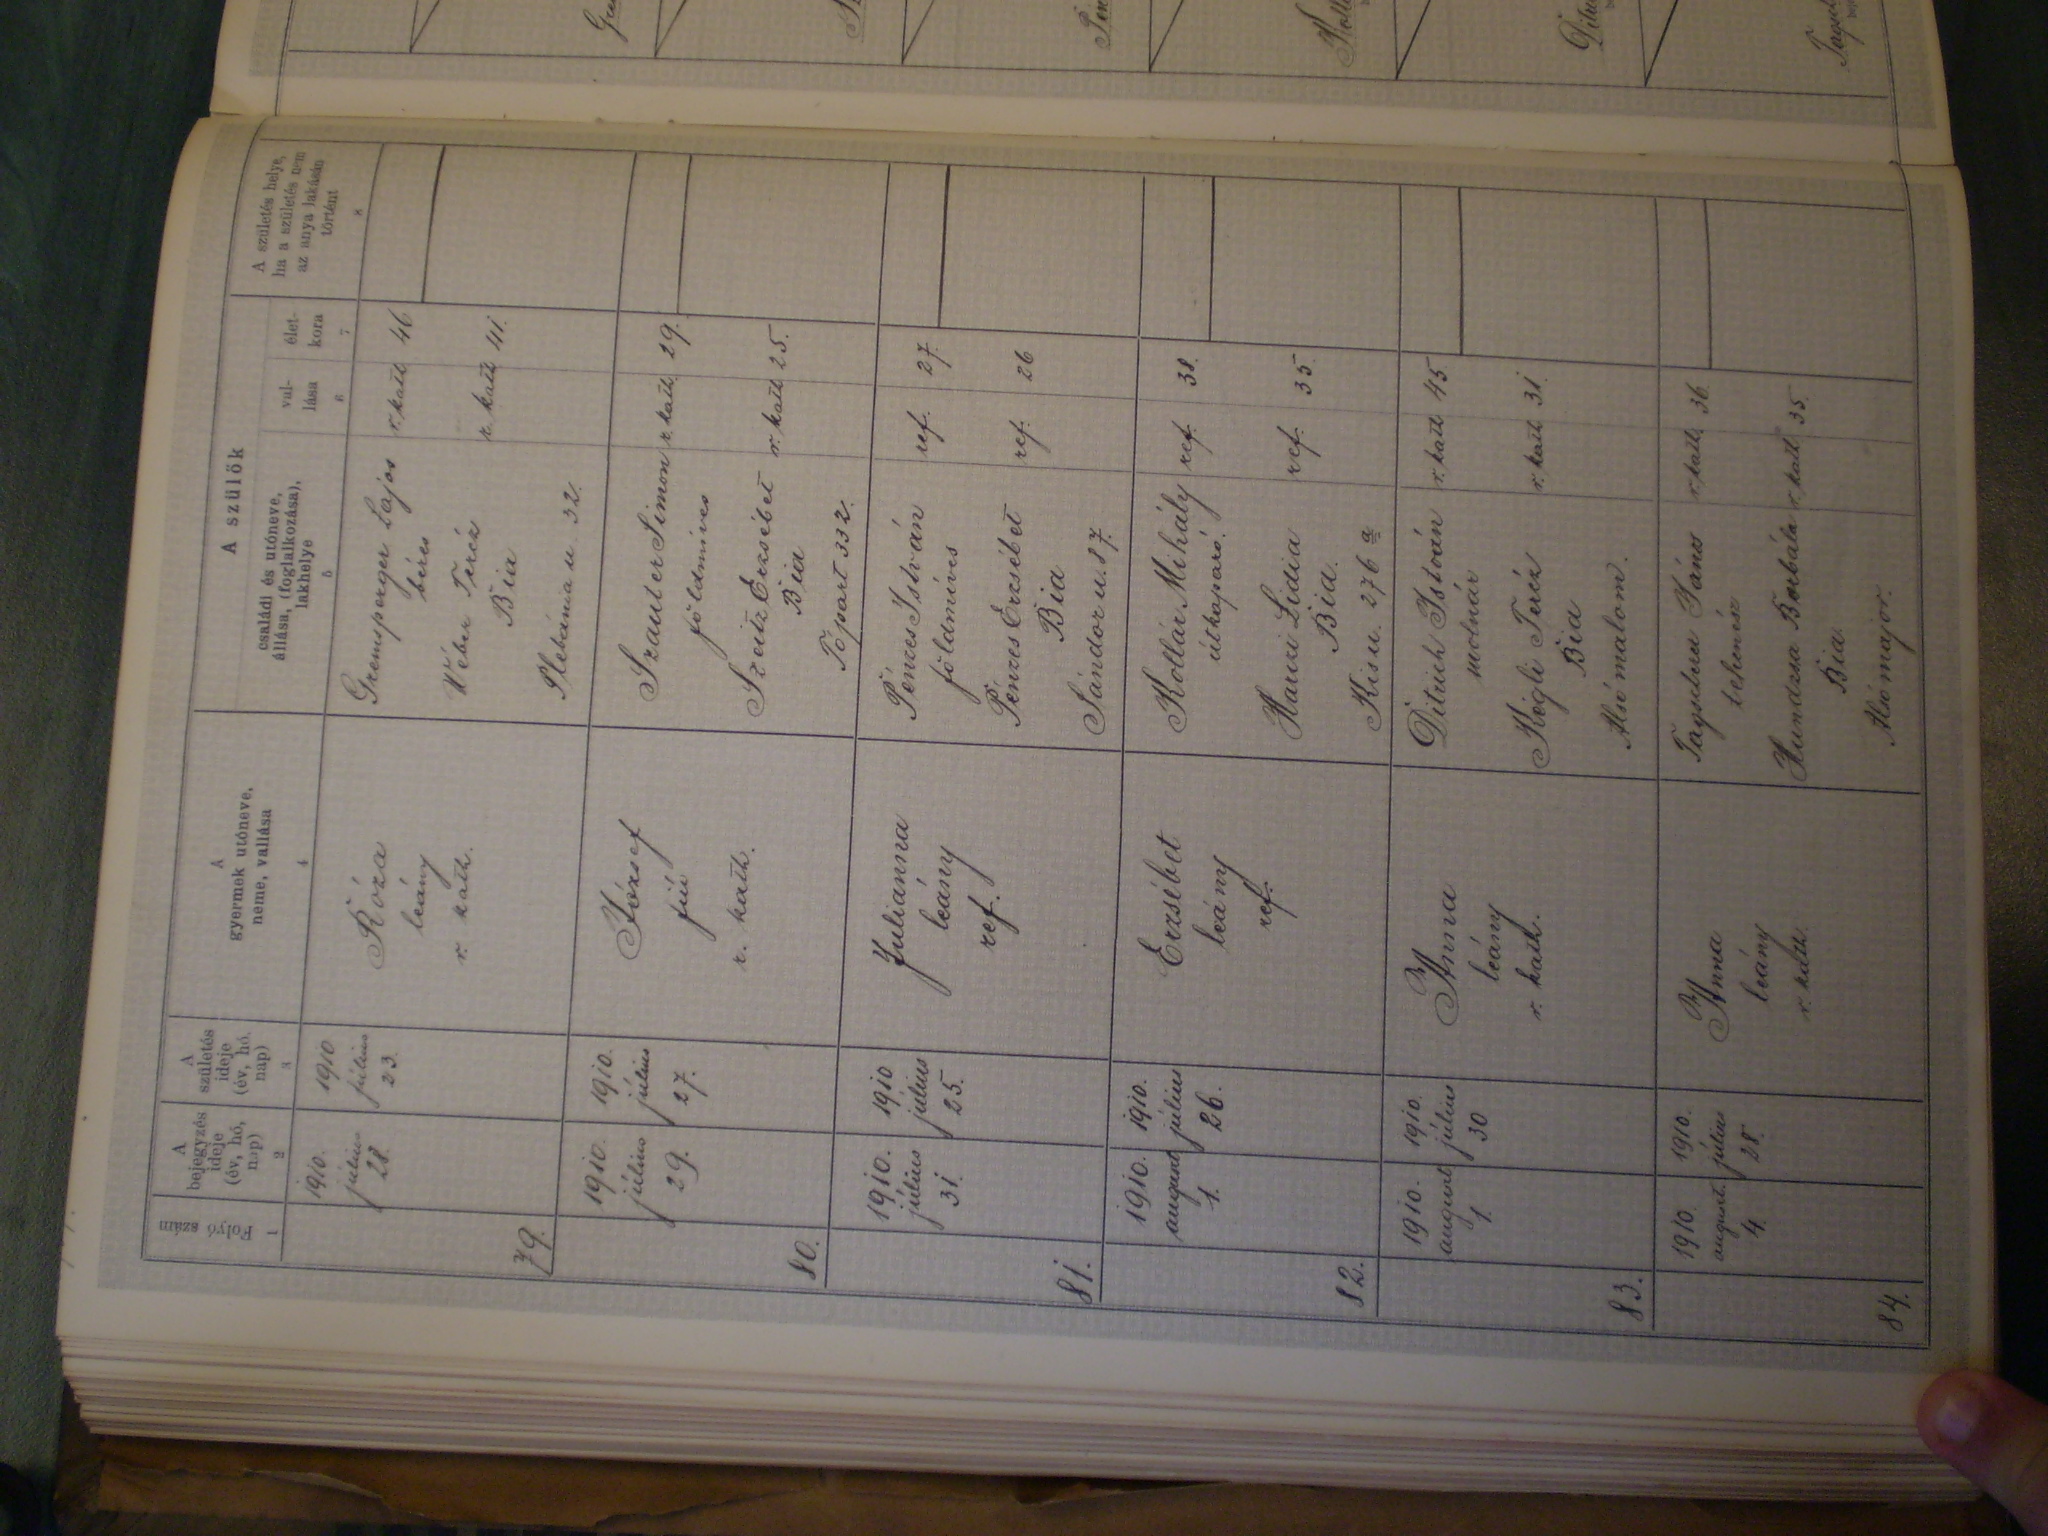 Folyó szám
1
A bejegyzés ideje (év, hó, nap)
2
A születés ideje (év, hó, nap)
3
A gyermek utóneve, neme, vallása
4
A szülők
családi és utóneve, állása, (foglalkozása), lakhelye
5
vallása
6
életkora
7
A születés helye, ha a születés nem az anya lakásán történt
8
79.
1910.
július
28.
1910
július
23.
Róza
leány
r. kath.
Gremsperger Lajos r. kath 46
béres
Wéber Teréz r. kath 41.
Bia
Plebánia u. 32.
80.
1910.
július
29.
1910.
július
27.
József
fiú
r. kath.
Szauter Simon r. kath. 29.
földmives
Szeitz Erzsébet r. kath 25.
Bia
Tópart 332.
81.
1910.
július
31.
1910
július
25.
Julianna
leány
ref.
Pénzes István ref. 27.
földmíves
Pénzes Erzsébet ref. 26
Bia
Sándor u. 87.
82.
1910.
august
1.
1910.
július
26.
Erzsébet
leány
ref.
Kollár Mihály ref. 38.
útkaparó.
Lidia ref. 35
Bia.
Kis u. 276 a
83.
1910.
august
1.
1910.
július
30
Anna
leány
r. kath.
Ditrich István r. kath 45
molnár
Kégli Teréz r. kath 31.
Bia
Alsómalom.
84.
1910.
august.
4.
1910.
július
28.
Anna
leány
r. kath.
János r. kath. 36
tehenész
Hundzsa Borbála r. kath 35.
Bia
Alsómajor.